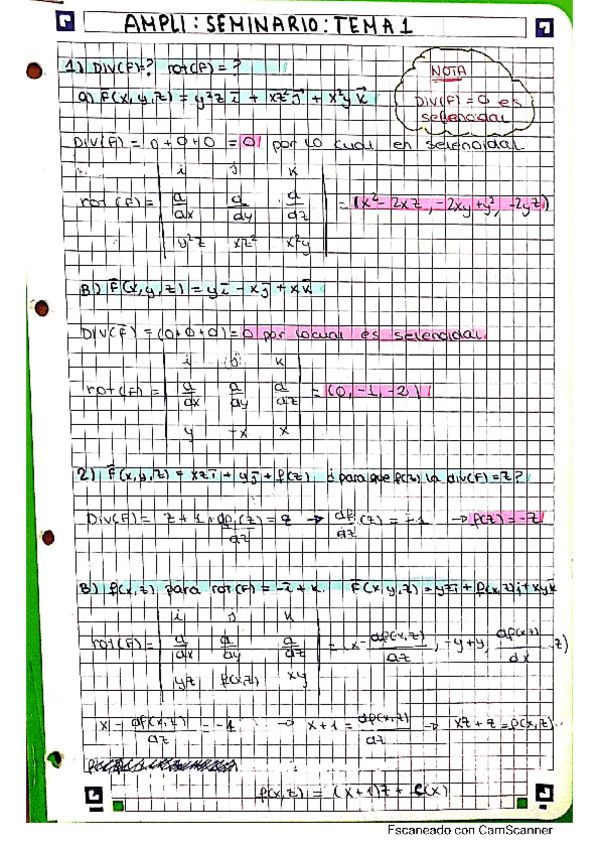 AMPLI: SEMINARIO: TEMA 1
1) DIV(F)=? rot(F)=?
a) F⃗(x,y,z) = y²z i⃗ + xz² j⃗ + x²y k⃗
NOTA
DIV(F)=0 es
selenoidal
DIV(F⃗) = 0+0+0 = 0 por lo cual en selenoidal
i j k
rot(F) = | d/dx d/dy d/dz | = (x²-2xz, -2xy+y², -2yz)
y²z xz² x²y
B) F⃗(x,y,z) = y i⃗ - x j⃗ + x k⃗
DIV(F⃗) = (0+0+0) = 0 por locual es selenoidal.
i j k
rot(F) = | d/dx d/dy d/dz | = (0, -1, -2)
y -x x
2) F⃗(x,y,z) = xz i⃗ + y j⃗ + f(z) ¿para que f(z) la div(F)=z?
DIV(F) = z+1+df(z)/dz = z → df/dz (z) = -1 → f(z) = -z
B) f(x,z) para rot(F) = -i+k. F⃗(x,y,z) = yz i + f(x,z) j + xy k
i j k
rot(F) = | d/dx d/dy d/dz | = (x - df(x,z)/dz, -y+y, df(x,z)/dx - z)
yz f(x,z) xy
x - df(x,z)/dz = -1 → x+1 = df(x,z)/dz → xz+z = f(x,z)
f(x,z) = (x+1)z + f(x)
Escaneado con CamScanner